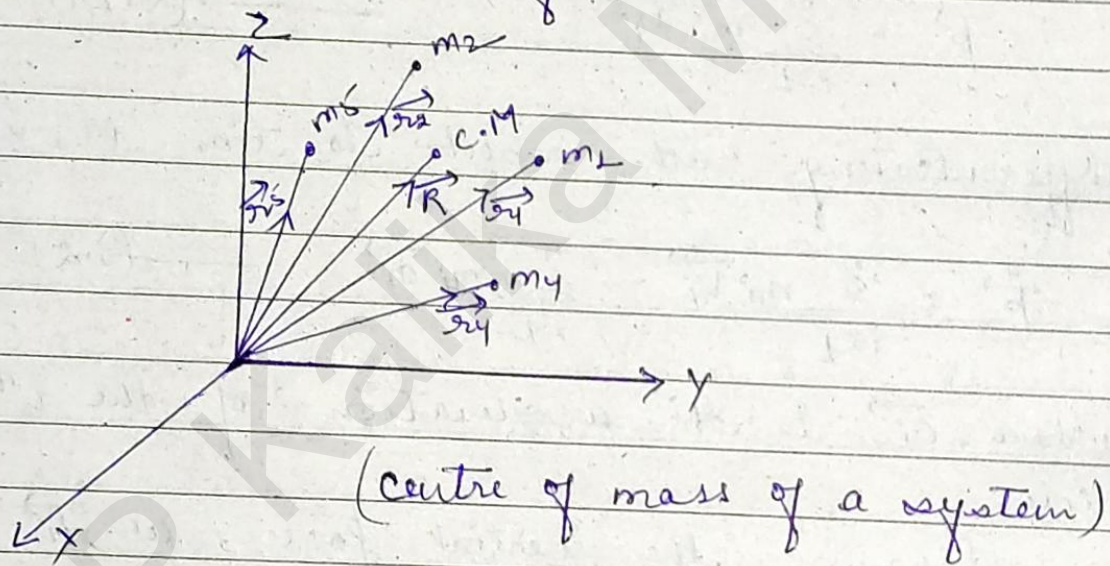 Z
m2
m5
r2
C.M
m1
r5
R
r1
m4
r4
Y
(centre of mass of a system)
X
Kalika M